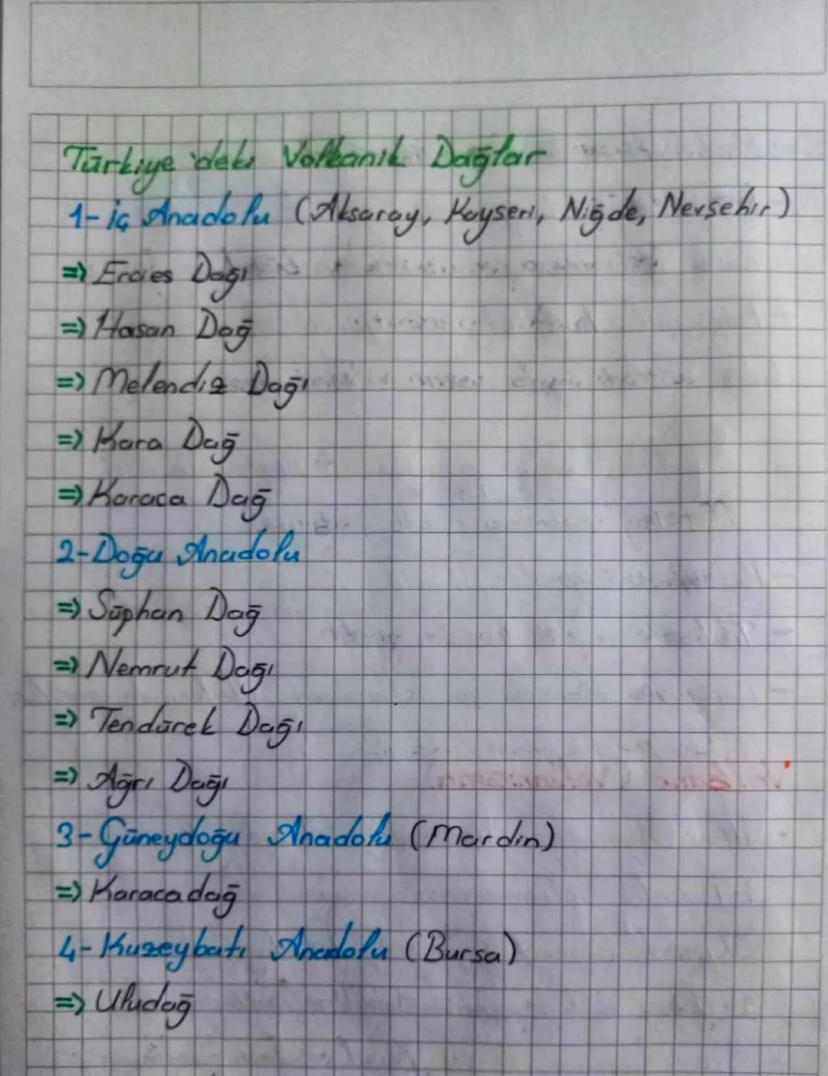 Türkiye'deki Volkanik Dağlar
1- iç Anadolu (Aksaray, Kayseri, Niğde, Nevşehir)
=> Ercies Dağı
=> Hasan Dağ
=> Melendiz Dağı
=> Kara Dağ
=> Karaca Dağ
2- Doğu Anadolu
=> Süphan Dağ
=> Nemrut Dağı
=> Tendürek Dağı
=> Ağrı Dağı
3- Güneydoğu Anadolu (Mardin)
=> Karacadağ
4- Kuzeybatı Anadolu (Bursa)
=> Uludağ